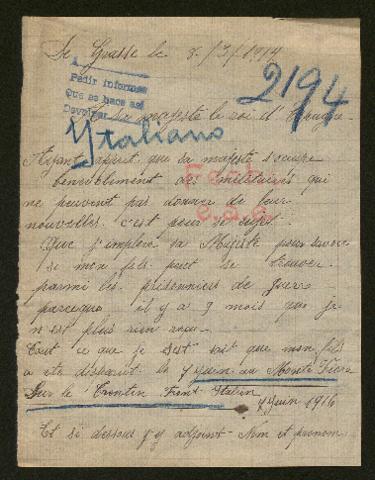 De Grasse le 8/3/1917
2194
A
Pedir informes
Que se hace así
Devolver
A sa majesté le roi d'Espagne
Italiano
Ayant appri que sa majesté s'occupe
benevolement de militaires qui
ne peuvent pas donner de leur
nouvelles c'est pour se
Que j'implore sa Majesté pour savoir
si mon fils peut se trouver
parmi les prisonniers de guerre
parceque il y a 9 mois que je
n'est plus rien reçu
Tout ce que je set est que mon fils
a ete disparut le 7 Juin au Monte Fiore
Sur le Trentin Front Italien
7 Juin 1916
Et si dessous j'y adjoint Nom et prenom